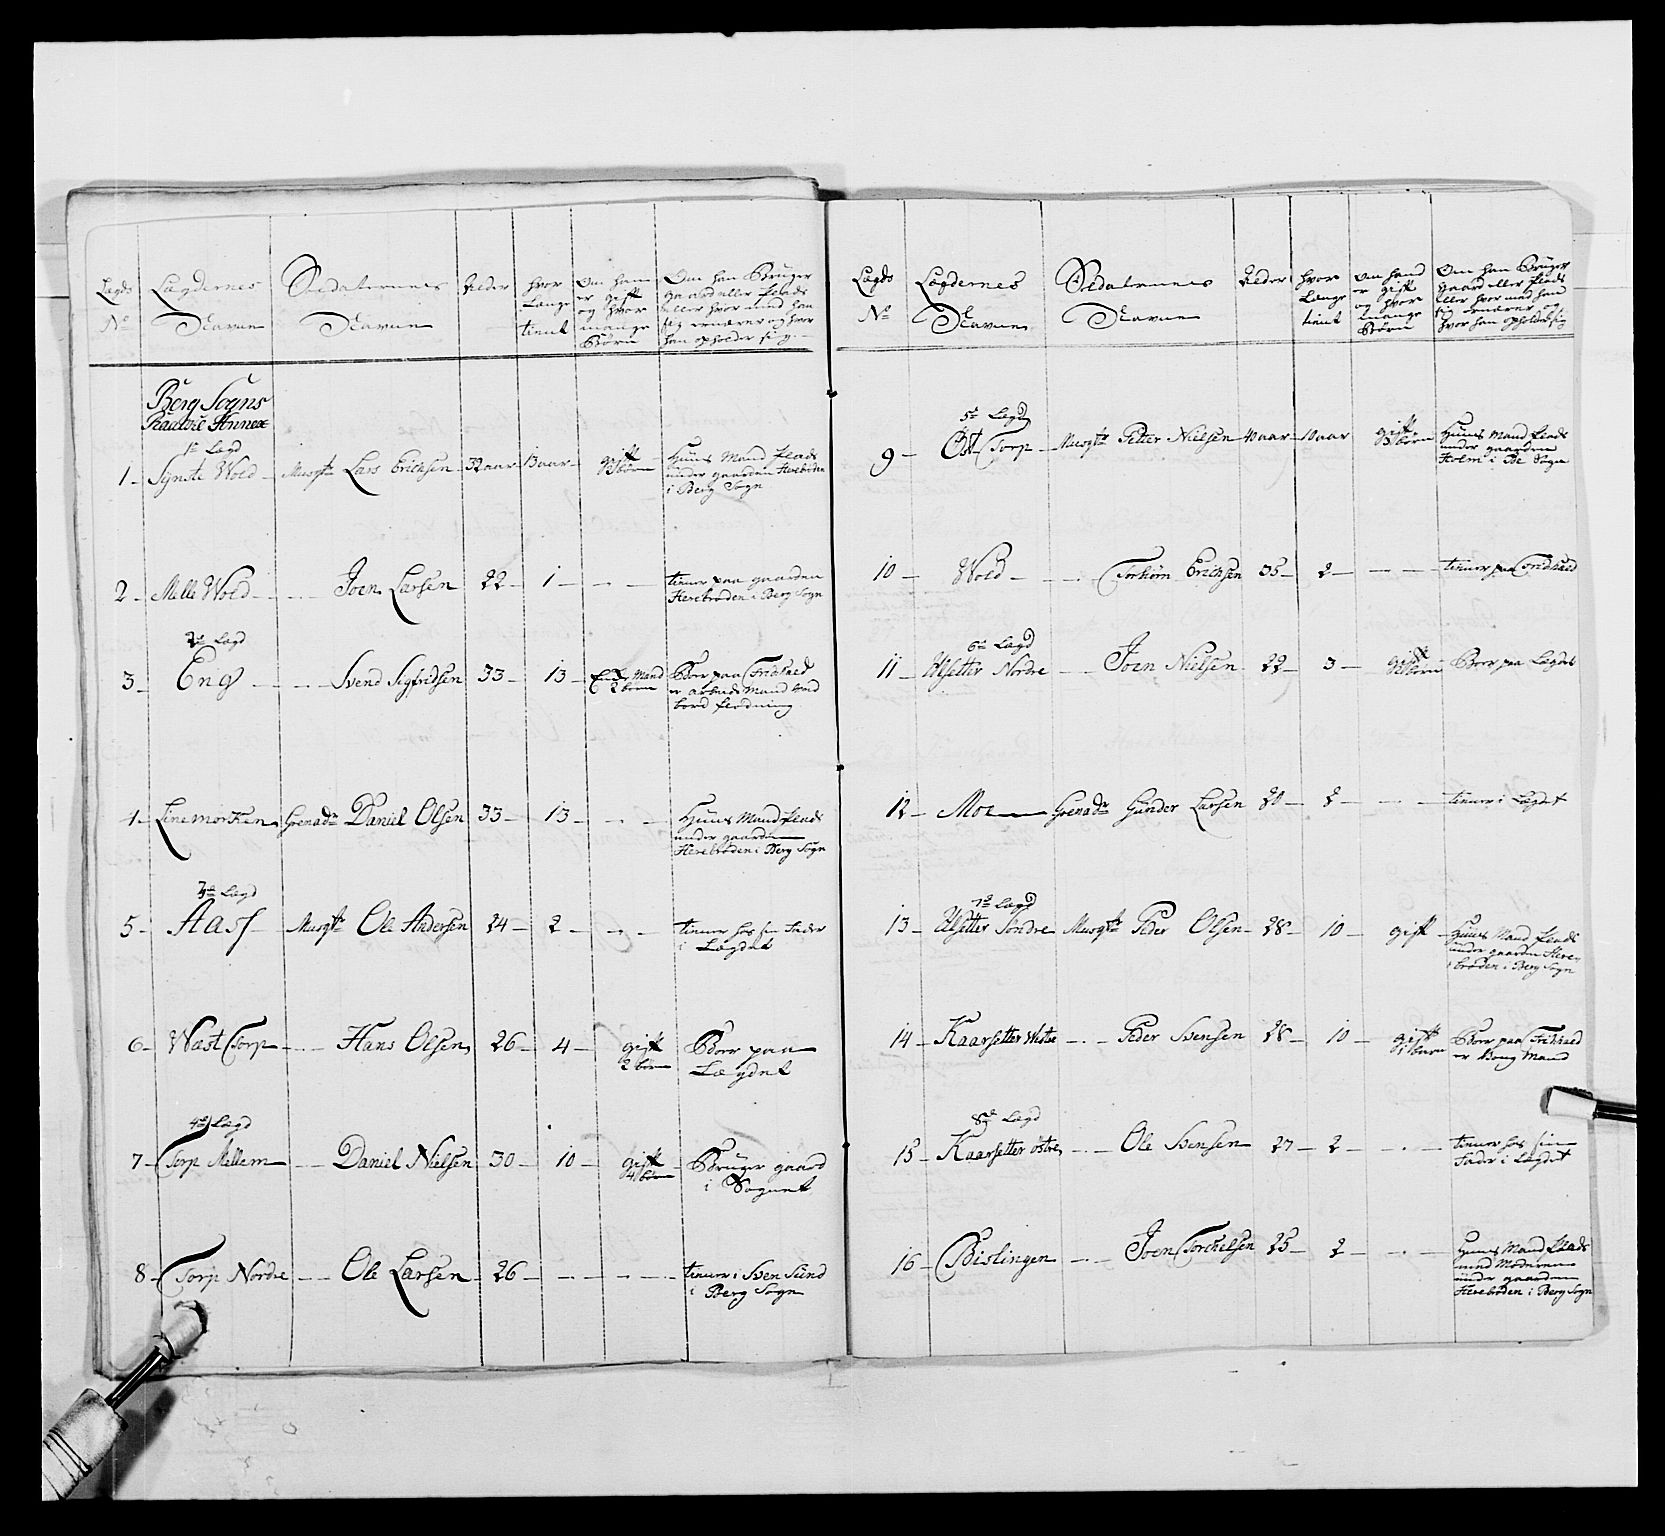 Lægds Lægdernes Soldaternes Alder hvor Om han Om han Bruger
No Navne Navne Længe er gift gaard eller Plads
tient og hvor eller hvor med han
mange sig ernærer og hvor
Børn han opholder sig
Berg Sogns
Annex
1te Lægd
1 Synste Wold Musqtr Lars Erichsen 32 aar 13 aar gift Huus Mand Plads
3 børn under gaarden Herebrøden
i Berg Sogn
2 Melle Wold Joen Larsen 22 1 tiener paa gaarden
Herebrøden i Berg Sogn
2de Lægd
3 Eng Svend Sigfridsen 33 13 Mand Boer paa Fridhald
2 børn er arbeids Mand ved
bord
4 Linemorken Grenadr Daniel Olsen 33 13 Huus Mand Plads
under gaarden
Herebrøden i Berg Sogn
3de Lægd
5 Aass Musqtr Ole Andersen 24 2 tiener hos sin Fader
i Lægdet
6 Wæst Torp Hans Olsen 26 4 gift Boer paa
2 børn Lægdet
4de Lægd
7 Torp Mellem Daniel Nielsen 30 10 gift Bruger gaard
4 børn i Sognet
8 Torp Nordre Ole Larsen 26 tiener i Sven Sund
i Berg Sogn
Lægds Lægdernes Soldaternes Alder hvor om hand Om han Bruger
No Navne Navne Længe er gift gaard eller Plads
tient og hvor eller hvor med hand
mange sig ernærer og
Børn hvor han opholder sig
5te Lægd
9 Øst Torp Musqtr Petter Nielsen 40 aar 10 aar gift Huus Mand Plads
3 børn under gaarden
Holm i Sogn
10 Wold Torbiørn Erichsen 35 2 tiener paa Fridhald
6te Lægd
11 Ulsetter Nordre Joen Nielsen 22 3 gift Boer paa Lægdet
12 Moe Grenadr Gunder Larsen 20 2 tiener i Lægdet
7de Lægd
13 Ulsetter Søndre Musqtr Peder Olsen 28 10 gift Huus Mand Plads
under gaarden Here
brøden i Berg Sogn
14 Kaarsetter Westre Peder Svensen 28 10 gift Boer paa Fridhald
1 barn er Mand
8de Lægd
15 Kaarsetter østre Ole Svensen 27 2 tiener hos sin
Fader i Lægdet
16 Bislingen Joen Torchelsen 25 2 Huus Mand Plads
med Moderen
under gaarden
Herebrøden i Berg Sogn